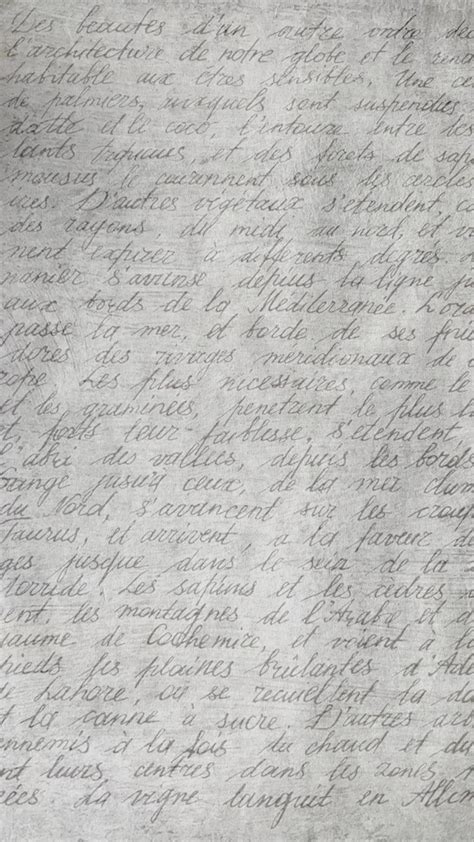 Des beautés d'un autre ordre déc
l'architecture de notre globe et le rend
habitable aux êtres sensibles. Une c
de palmiers, auxquels sont suspendus
datte et le coco, l'entoure entre les
lants tropiques, et des forêts de sap
mousus le couronnent sous les cercles
ires. D'autres vegetaux s'etendent, c
des rayons, du midi au nord, et v
nent expirer à différents degrés.
nanier s'avance depuis la ligne ju
aux bords de la Méditerranée. L'ora
passe la mer, et borde de ses frui
dorés des rivages meridionaux de
rope. Les plus nécessaires, comme le
et les graminées, penetrent le plus
t, forts leur faiblesse, s'etendent,
l'abri des vallées, depuis les bords
Gange jusqu'à ceux, de la mer
du Nord, s'avancent sur les croup
Taurus, et arrivent, a la faveur de
ges jusque dans le sein de la
torride. Les sapins et les cedres
ent, les montagnes de l'Arabe et d
yaume de Cachemire, et voient à l
pieds les plaines brûlantes d'Ad
de Lahore, ou se recueillent la d
t la canne à sucre. D'autres ar
ennemis à la fois du chaud et du
nt leurs, centres dans les zones
ées. La vigne languit en Allem